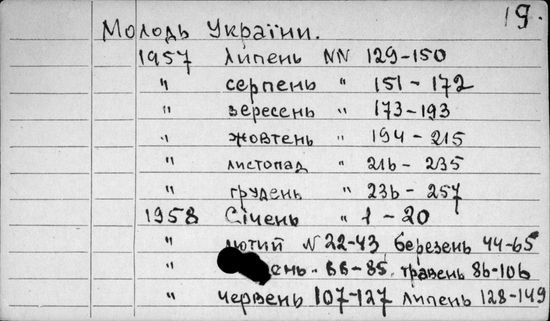 19.
Молодь України.
1957 Липень NN 129-150
" серпень " 151-172
" вересень " 173-193
" жовтень " 194-215
" листопад " 216-235
" грудень " 236-257
1958 Січень " 1-20
" лютий N 22-43 березень 44-65
" 66-85 травень 86-106
" червень 107-127 липень 128-149